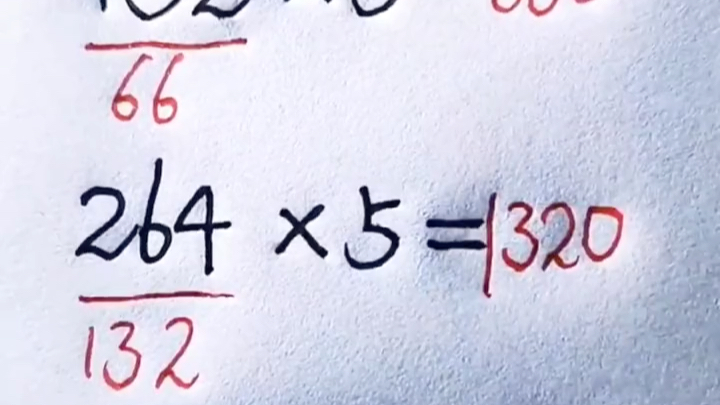 66
264 × 5 = 1320
132